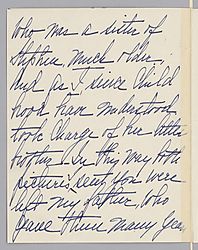 Who was a sister of
Stephen, much older,
and as I since child
hood have understood
took charge of her little
brother. In this way both
pictures sent you were
left my father, who
gave them many years